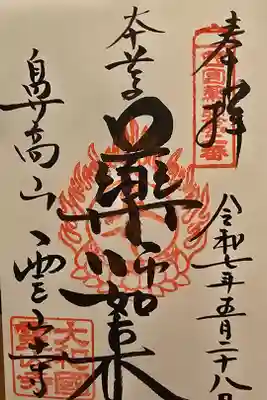 奉拝
令和七年五月二十八日
本尊
薬師如来
鼻高山
霊山寺
大和國
霊山寺